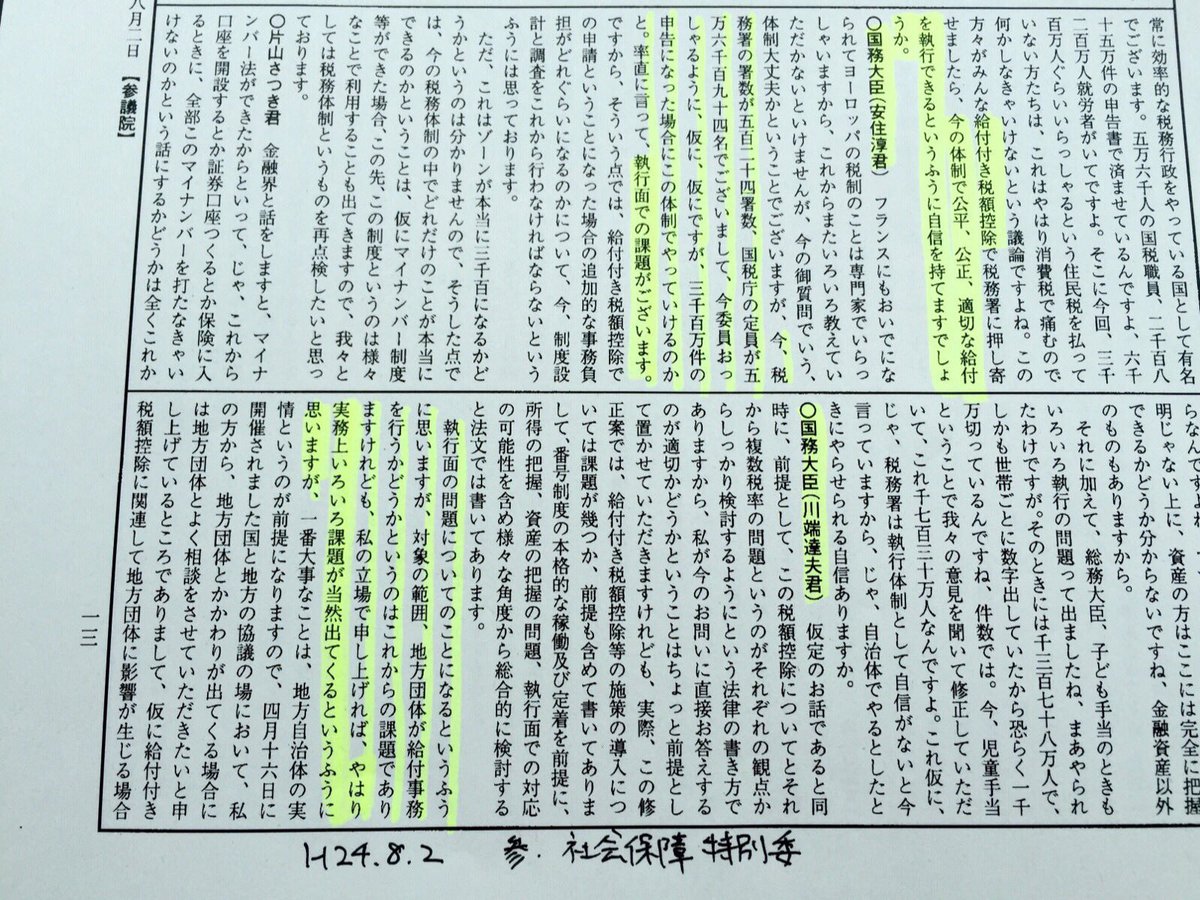 常に効率的な税務行政をやっている国として有名
でございます。五万六千人の国税職員、二千百八
十五万件の申告書で済ませているんですよ、六千
二百万人就労者がいてですよ。そこに今回、三千
百万人ぐらいいらっしゃるという住民税を払って
いない方たちは、これはやはり消費税で痛むので
何かしなきゃいけないという議論ですよね。この
方々がみんな給付付き税額控除で税務署に押し寄
せましたら、今の体制で公平、公正、適切な給付
を執行できるというふうに自信を持てますでしょ
うか。
○国務大臣(安住淳君) フランスにもおいでにな
られてヨーロッパの税制のことは専門家でいらっ
しゃいますから、これからまたいろいろ教えてい
ただかないといけませんが、今の御質問でいう、
体制大丈夫かということでございますが、今、税
務署の署数が五百二十四署数、国税庁の定員が五
万六千百九十四名でございまして、今委員おっ
しゃるように、仮に、仮にですが、三千百万件の
申告になった場合にこの体制でやっていけるのか
と。率直に言って、執行面での課題がございます。
ですから、そういう点では、給付付き税額控除で
の申請ということになった場合の追加的な事務負
担がどれぐらいになるのかについて、今、制度設
計と調査をこれから行わなければならないという
ふうには思っております。
ただ、これはゾーンが本当に三千百になるかど
うかというのは分かりませんので、そうした点で
は、今の税務体制の中でどれだけのことが本当に
できるのかということは、仮にマイナンバー制度
等ができた場合、この先、この制度というのは様々
なことで利用することも出てきますので、我々と
しては税務体制というものを再点検したいと思っ
ております。
○片山さつき君 金融界と話をしますと、マイナ
ンバー法ができたからといって、じゃ、これから
口座を開設するとか証券口座つくるとか保険に入
るときに、全部このマイナンバーを打たなきゃい
けないのかという話にするかどうかは全くこれか
八月二日 【参議院】
らなんですよ
明じゃない上に、資産の方はここには完全に把握
できるかどうか分からないですね、金融資産以外
のものもありますから。
それに加えて、総務大臣、子ども手当のときも
いろいろ執行の問題って出ましたね、まあやられ
たわけですが。そのときには千三百七十八万人で、
しかも世帯ごとに数字出していたから恐らく一千
万切っているんですね、件数では。今、児童手当
ということで我々の意見を聞いて修正していただ
いて、これ千七百三十万人なんですよ。これ仮に、
じゃ、税務署は執行体制として自信がないと今
言っていますから、じゃ、自治体でやるとしたと
きにやらせられる自信ありますか。
○国務大臣(川端達夫君) 仮定のお話であると同
時に、前提として、この税額控除についてとそれ
から複数税率の問題というのがそれぞれの観点か
らしっかり検討するようにという法律の書き方で
ありますから、私が今のお問いに直接お答えする
のが適切かどうかということはちょっと前提とし
て置かせていただきますけれども、実際、この修
正案では、給付付き税額控除等の施策の導入につ
いては課題が幾つか、前提も含めて書いてありま
して、番号制度の本格的な稼働及び定着を前提に、
所得の把握、資産の把握の問題、執行面での対応
の可能性を含め様々な角度から総合的に検討する
と法文では書いてあります。
執行面の問題についてのことになるというふう
に思いますが、対象の範囲、地方団体が給付事務
を行うかどうかというのはこれからの課題であり
ますけれども、私の立場で申し上げれば、やはり
実務上いろいろ課題が当然出てくるというふうに
思いますが、一番大事なことは、地方自治体の実
情というのが前提になりますので、四月十六日に
開催されました国と地方の協議の場において、私
の方から、地方団体とかかわりが出てくる場合に
は地方団体とよく相談をさせていただきたいと申
し上げているところでありまして、仮に給付付き
税額控除に関連して地方団体に影響が生じる場合
一一三
H24.8.2 参.社会保障特別委